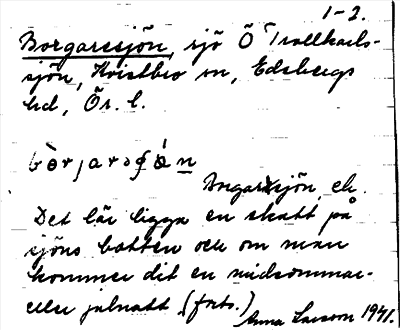 1-2.
Borgarssjön, sjö Ö Trollkarls-
sjön, Kvistbro sn, Edsbergs
hd, Ör. l.
Borgarsjön, ek.
Det lär ligga en skatt på
sjöns botten och om man
kommer dit en midsommar-
eller julnatt (forts.)
Anna Larsson 1941.